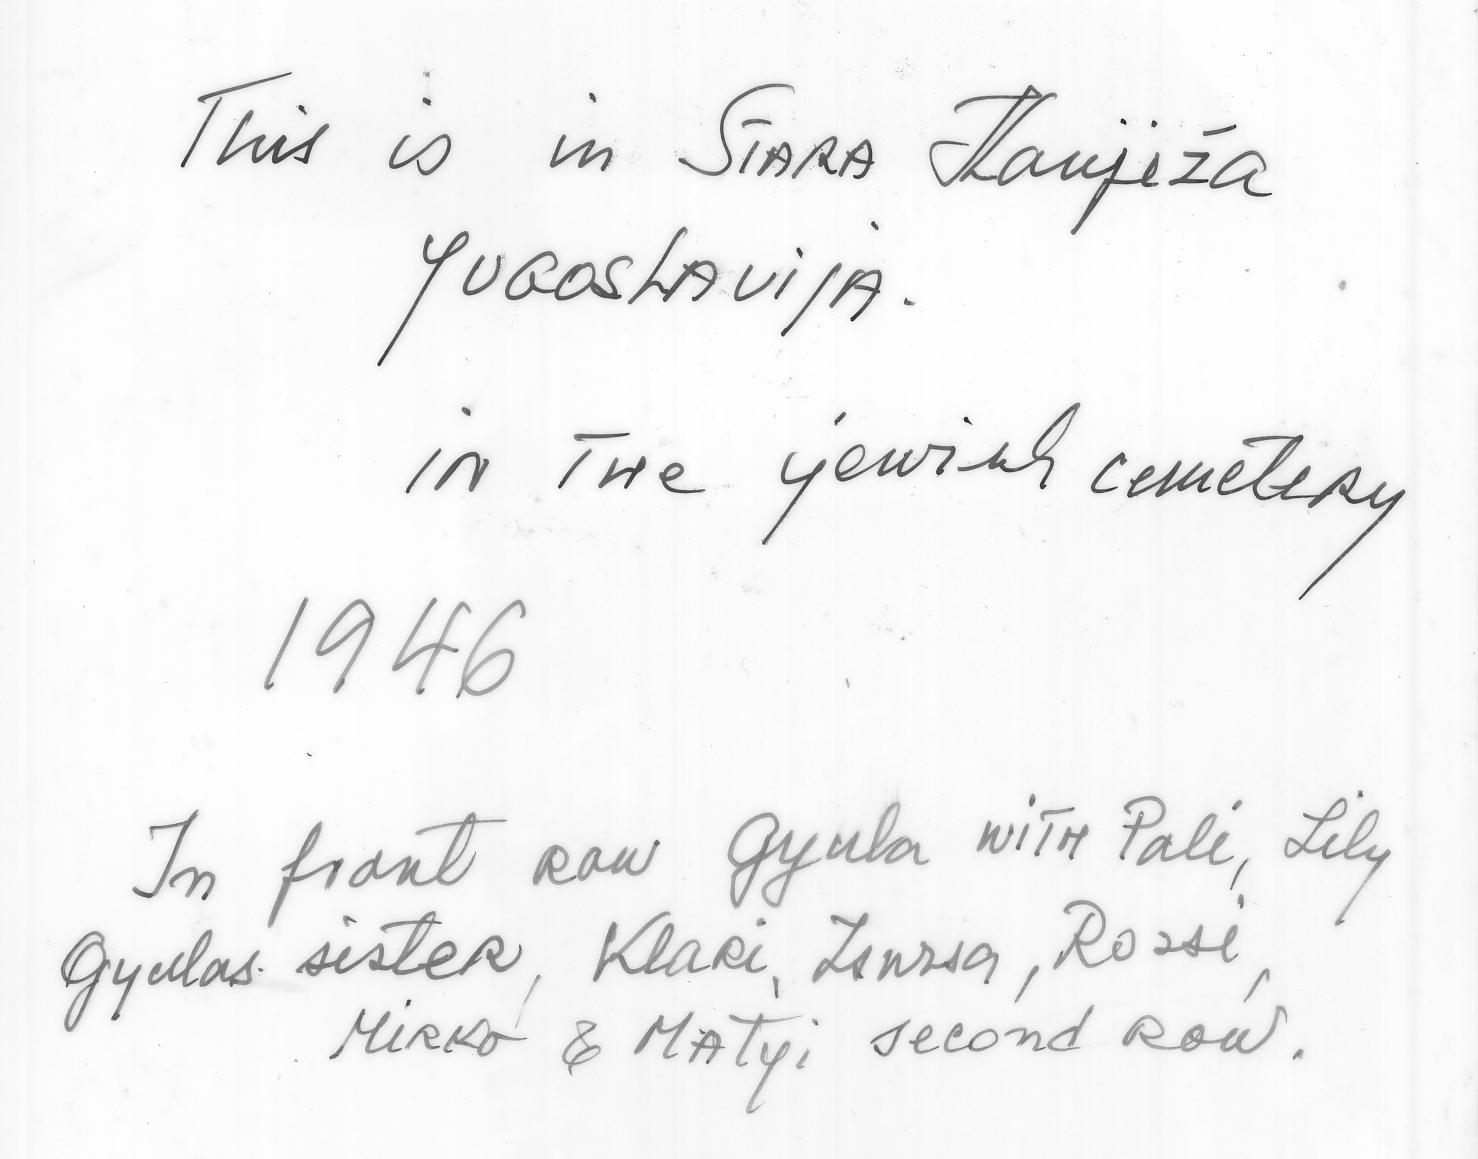 This is in STARA Kanjiža
YUGOSLAVIJA.
in THe jewish cemeteRy
1946
In front Row Gyula wiTH Pali, Lily
Gyulas sisteR, KlaRi, Rozsi,
MiRKo & MATyi second Row.